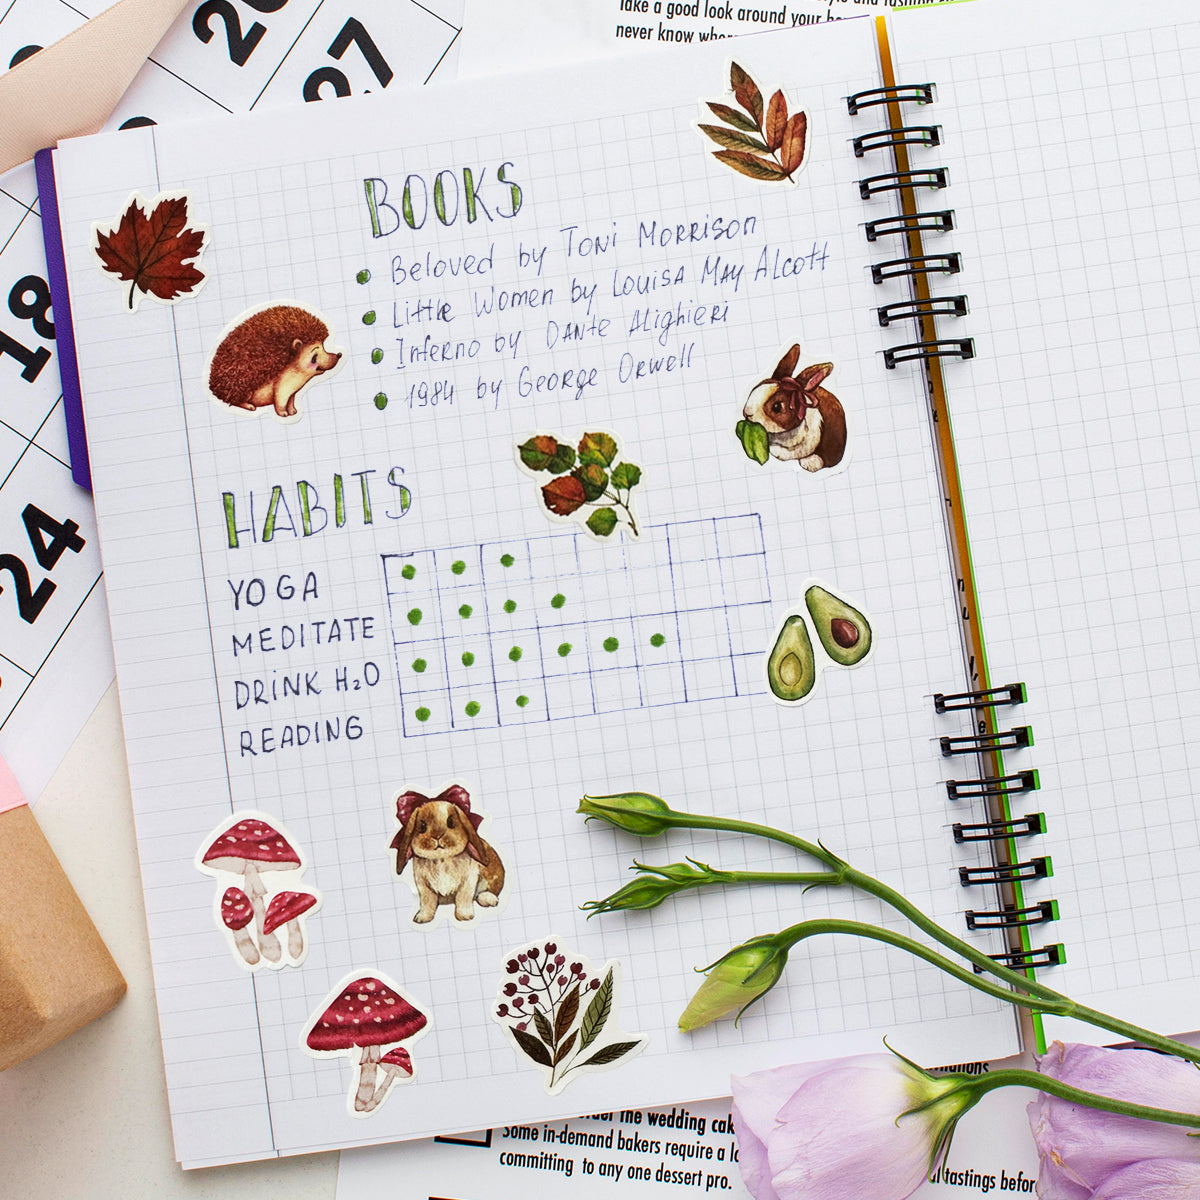 20
27
Take a good look around your
never know
18
24
BOOKS
Beloved by Toni Morrison
Little Women by Louisa May Alcott
Inferno by Dante Alighieri
1984 by George Orwell
HABITS
YOGA
MEDITATE
DRINK H₂O
READING
the wedding
Some in-demand bakers require a
committing to any one dessert pro.
tastings